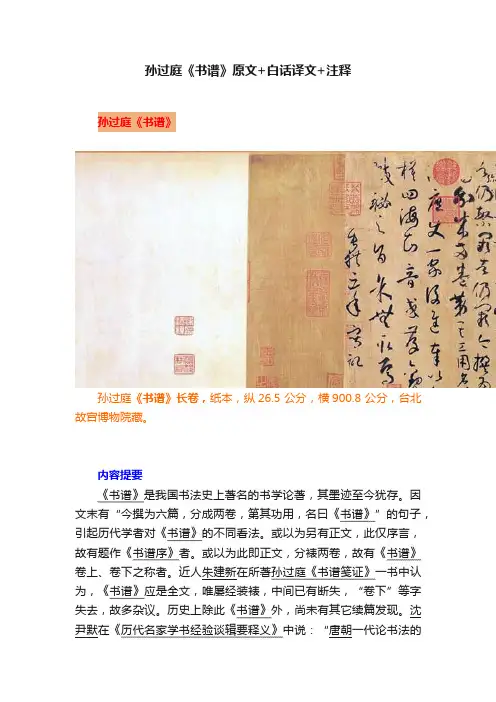 孙过庭《书谱》原文+白话译文+注释
孙过庭《书谱》
分成两卷第其工用名
庶使一家后进奉以
模四海知音或存观
缄秘之旨余无取焉
垂拱三年写记
孙过庭《书谱》长卷，纸本，纵26.5公分，横900.8公分，台北
故宫博物院藏。
内容提要
《书谱》是我国书法史上著名的书学论著，其墨迹至今犹存。因
文末有“今撰为六篇，分成两卷，第其功用，名曰《书谱》”的句子，
引起历代学者对《书谱》的不同看法。或以为另有正文，此仅序言，
故有题作《书谱序》者。或以为此即正文，分裱两卷，故有《书谱》
卷上、卷下之称者。近人朱建新在所著孙过庭《书谱笺证》一书中认
为，《书谱》应是全文，唯屡经装裱，中间已有断失，“卷下”等字
失去，故多杂议。历史上除此《书谱》外，尚未有其它续篇发现。沈
尹默在《历代名家学书经验谈辑要释义》中说：“唐朝一代论书法的